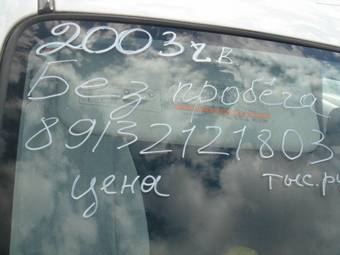 2003 г в
Без пробега
89132121803
цена тыс.ру